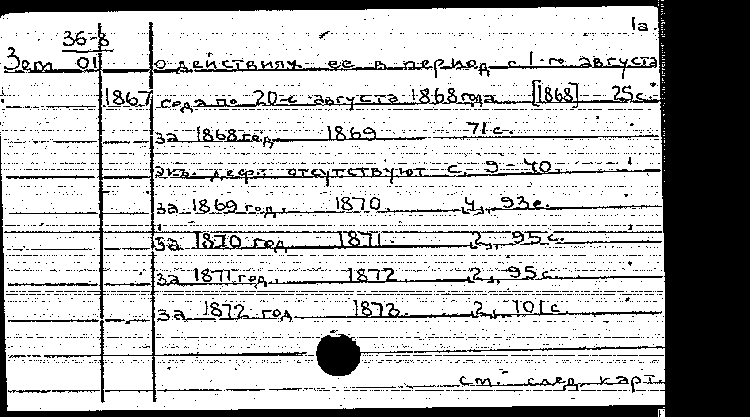 1а.
36-8
Зем 01 о действиях ее в период с 1-го августа
1867 года по 20-е августа 1868 года [1868] 25с.
за 1868 год, 1869 71с.
экз. деф. отсутствуют с. 9-40.
за 1869 год. 1870. 93с.
за 1870 год 1871. 2, 95с.
за 1871 год. 1872 2, 95с
за 1872 год 1873. 2, 101с.
см. след. карт.